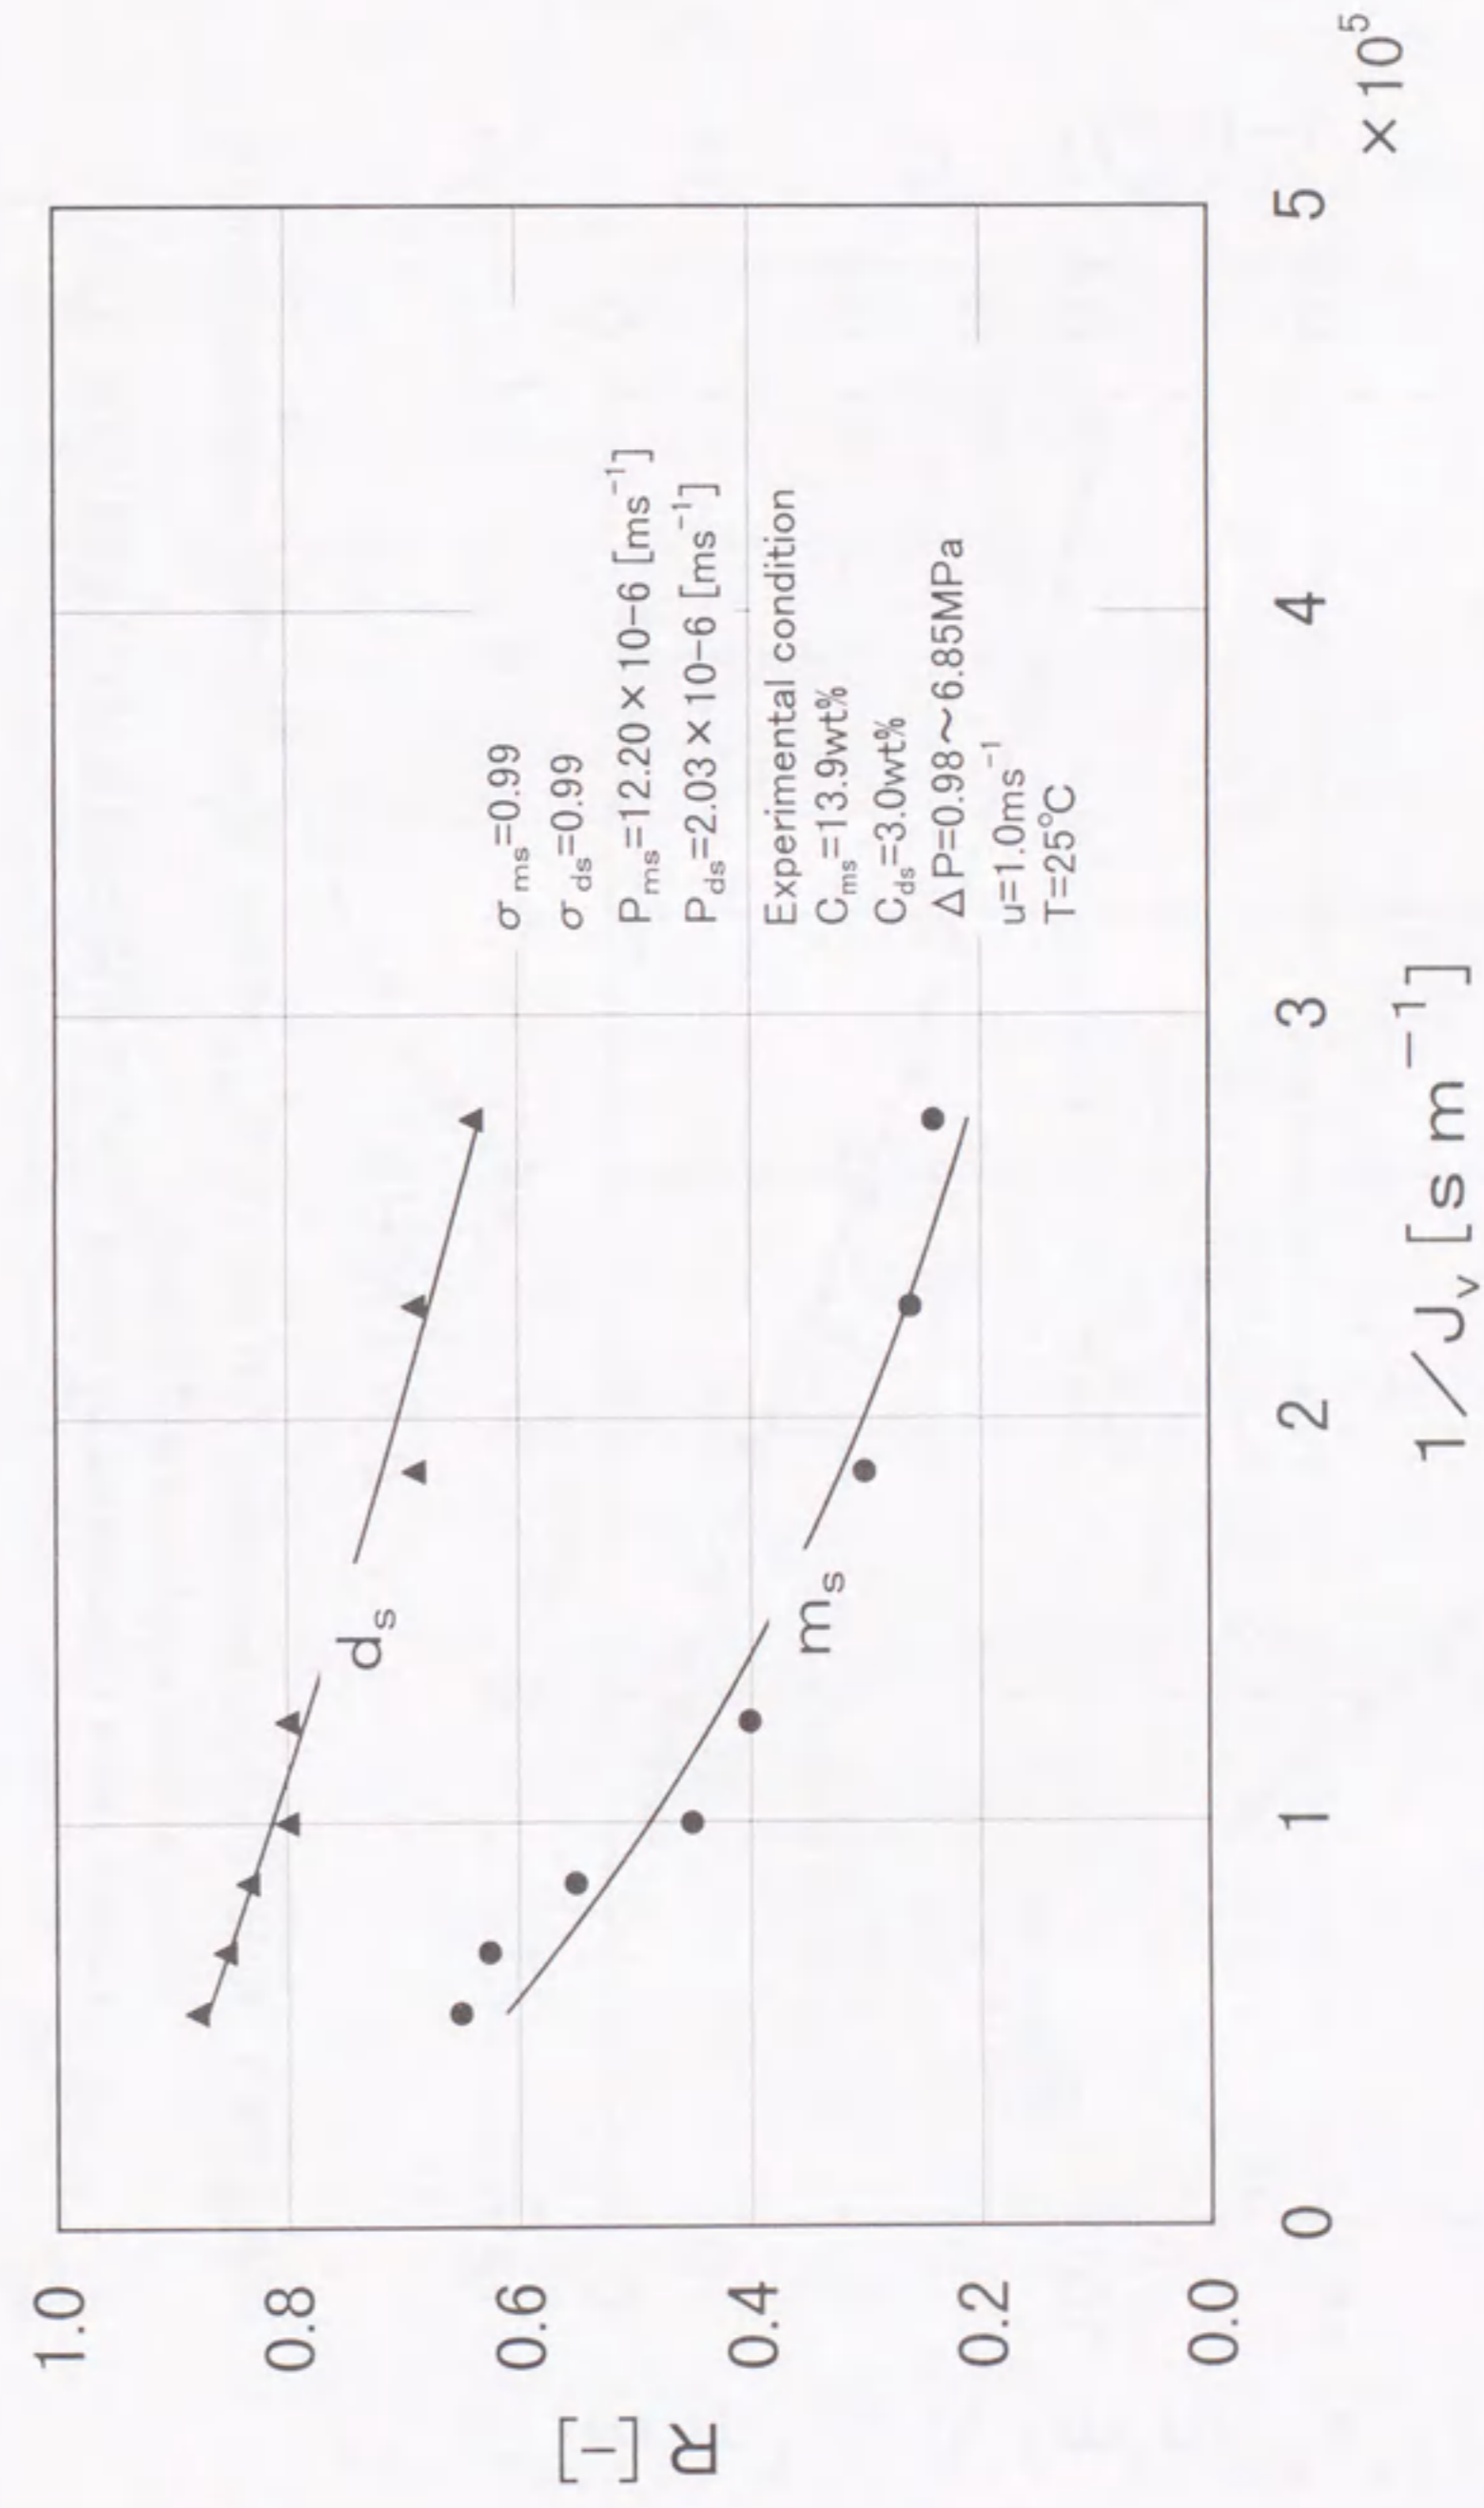 R [-]
1.0
0.8
0.6
0.4
0.2
0.0
d_s
m_s
σ_ms=0.99
σ_ds=0.99
P_ms=12.20×10-6 [ms⁻¹]
P_ds=2.03×10-6 [ms⁻¹]
Experimental condition
C_ms=13.9wt%
C_ds=3.0wt%
ΔP=0.98～6.85MPa
u=1.0ms⁻¹
T=25℃
0 1 2 3 4 5
×10⁵
1／J_v [s m⁻¹]